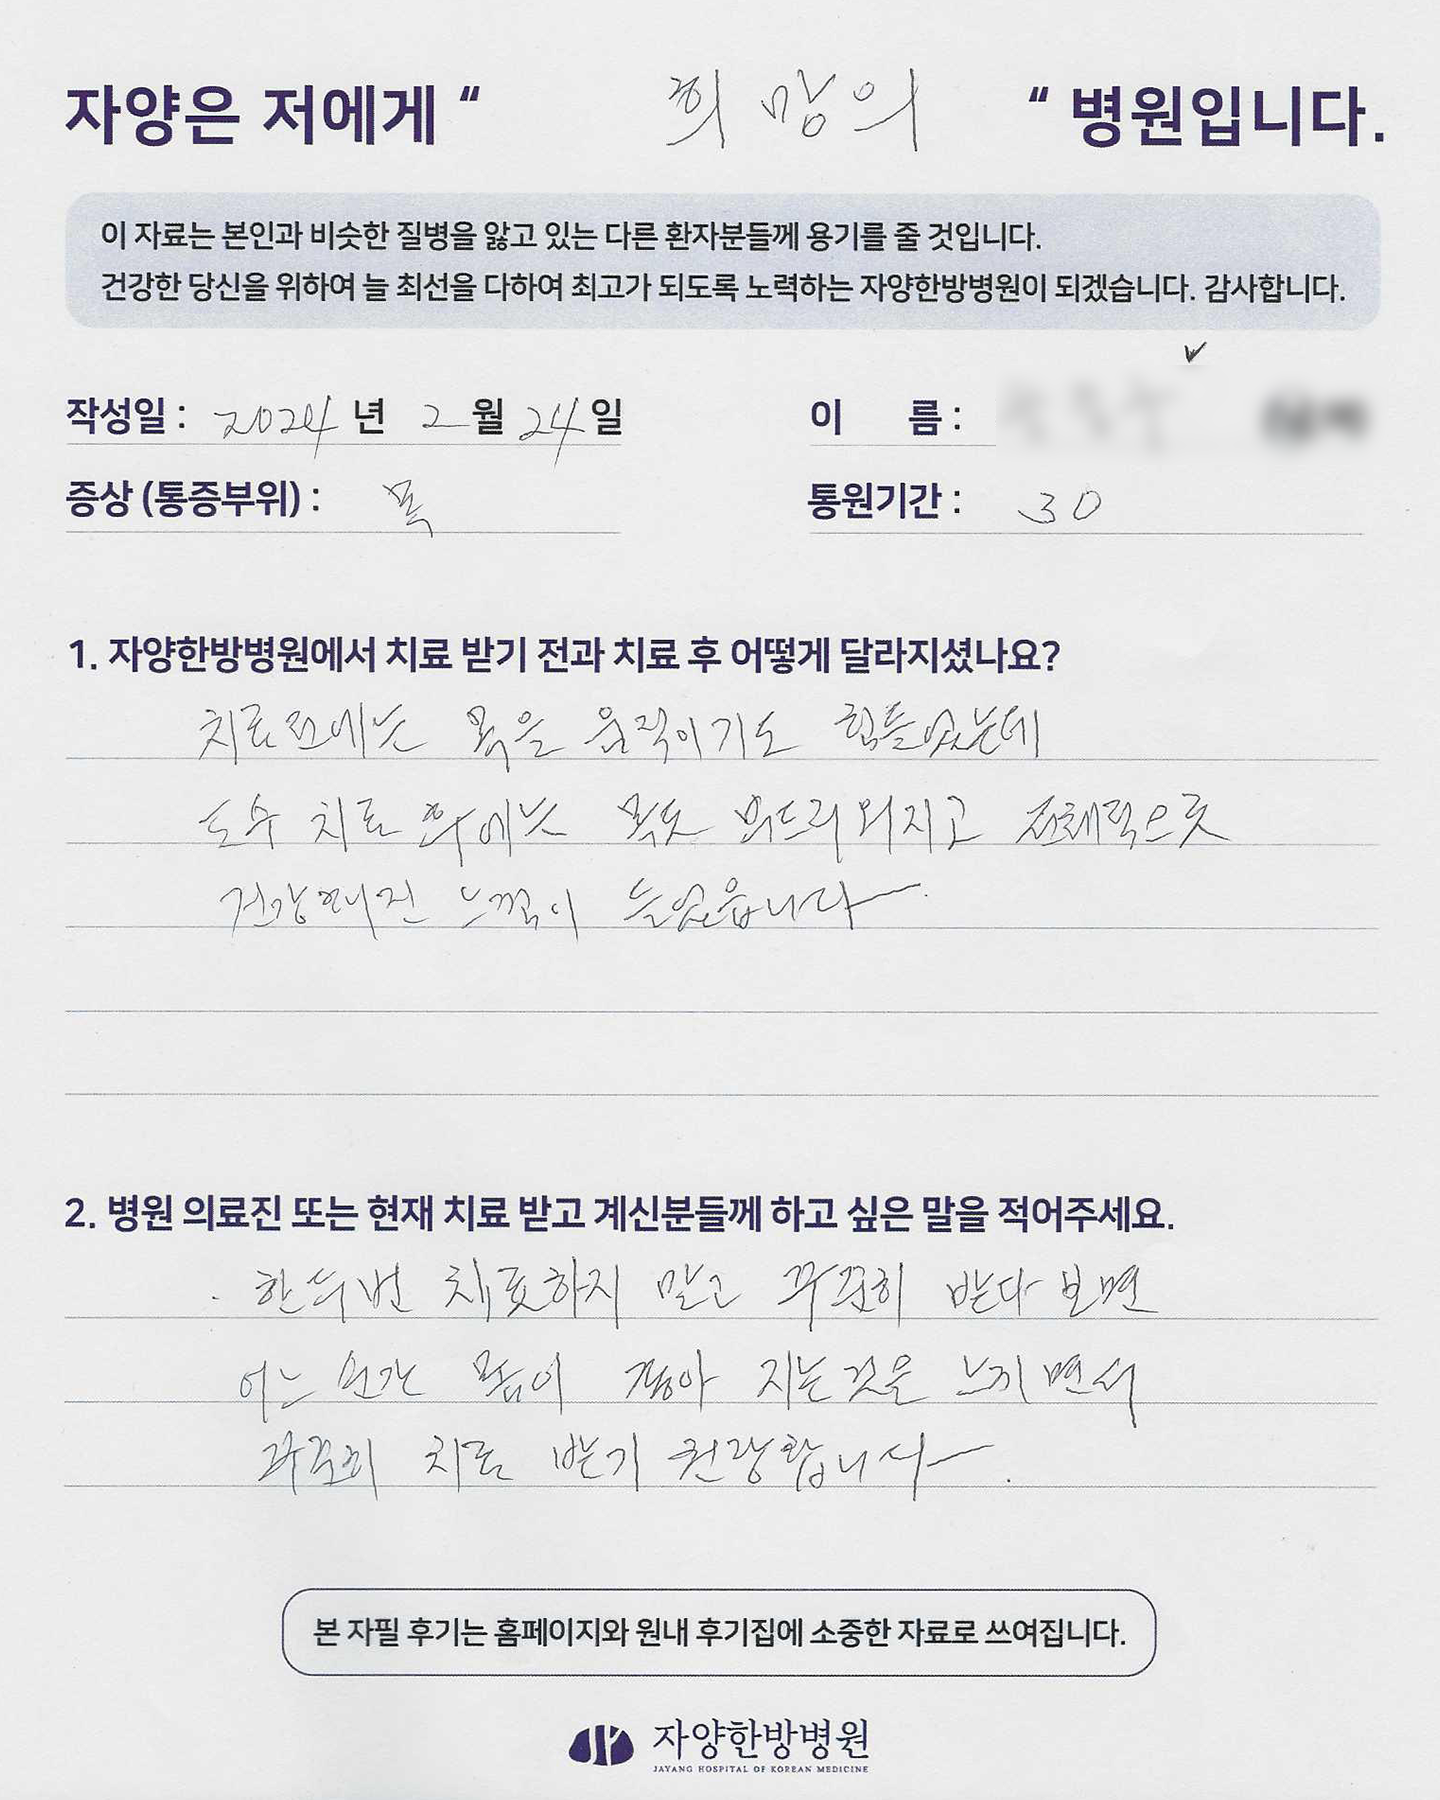 자양은 저에게 “ 희망의 “ 병원입니다.
이 자료는 본인과 비슷한 질병을 앓고 있는 다른 환자분들께 용기를 줄 것입니다.
건강한 당신을 위하여 늘 최선을 다하여 최고가 되도록 노력하는 자양한방병원이 되겠습니다. 감사합니다.
작성일 : 2024 년 2 월 24 일 이 름 :
증상 (통증부위) : 목 통원기간 : 30
1. 자양한방병원에서 치료 받기 전과 치료 후 어떻게 달라지셨나요?
치료전에는 목을 움직이기도 힘들었는데
도수 치료 후에는 목도 부드러워지고 전체적으로
건강해진 느낌이 들었읍니다
2. 병원 의료진 또는 현재 치료 받고 계신분들께 하고 싶은 말을 적어주세요.
한두번 치료하지 말고 꾸준히 받다 보면
어느 순간 몸이 좋아 지는것을 느끼면서
꾸준히 치료 받기 권장합니다.
본 자필 후기는 홈페이지와 원내 후기집에 소중한 자료로 쓰여집니다.
자양한방병원
JAYANG HOSPITAL OF KOREAN MEDICINE